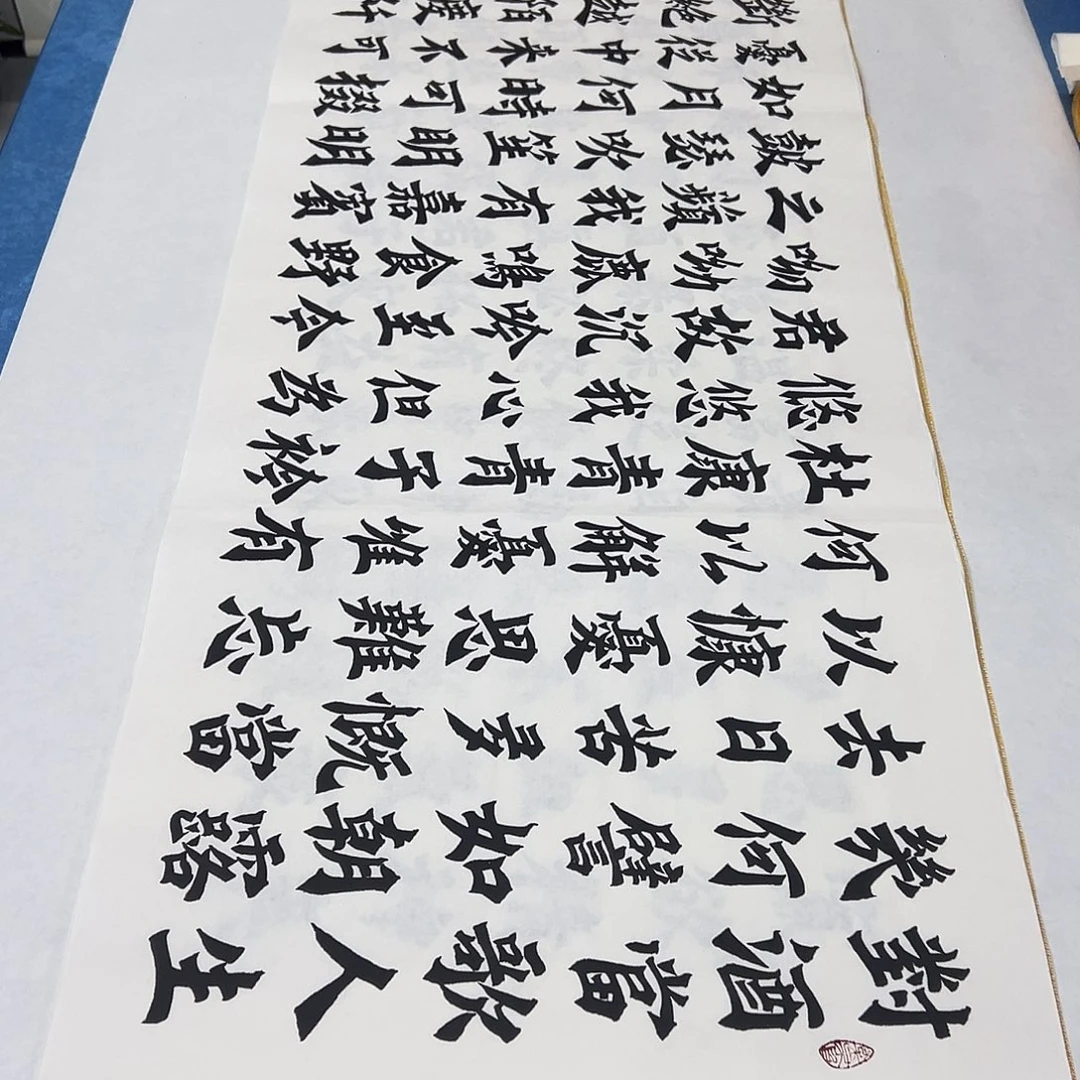 對酒當歌人生
幾何譬如朝露
去日苦多慨當
以慷憂思難忘
何以解憂維有
杜康青青子衿
悠悠我心但為
君故沉吟至今
呦呦鹿鳴食野
之蘋我有嘉賓
鼓瑟吹笙明明
如月何時可掇
憂從中来不可
斷絶越陌度阡